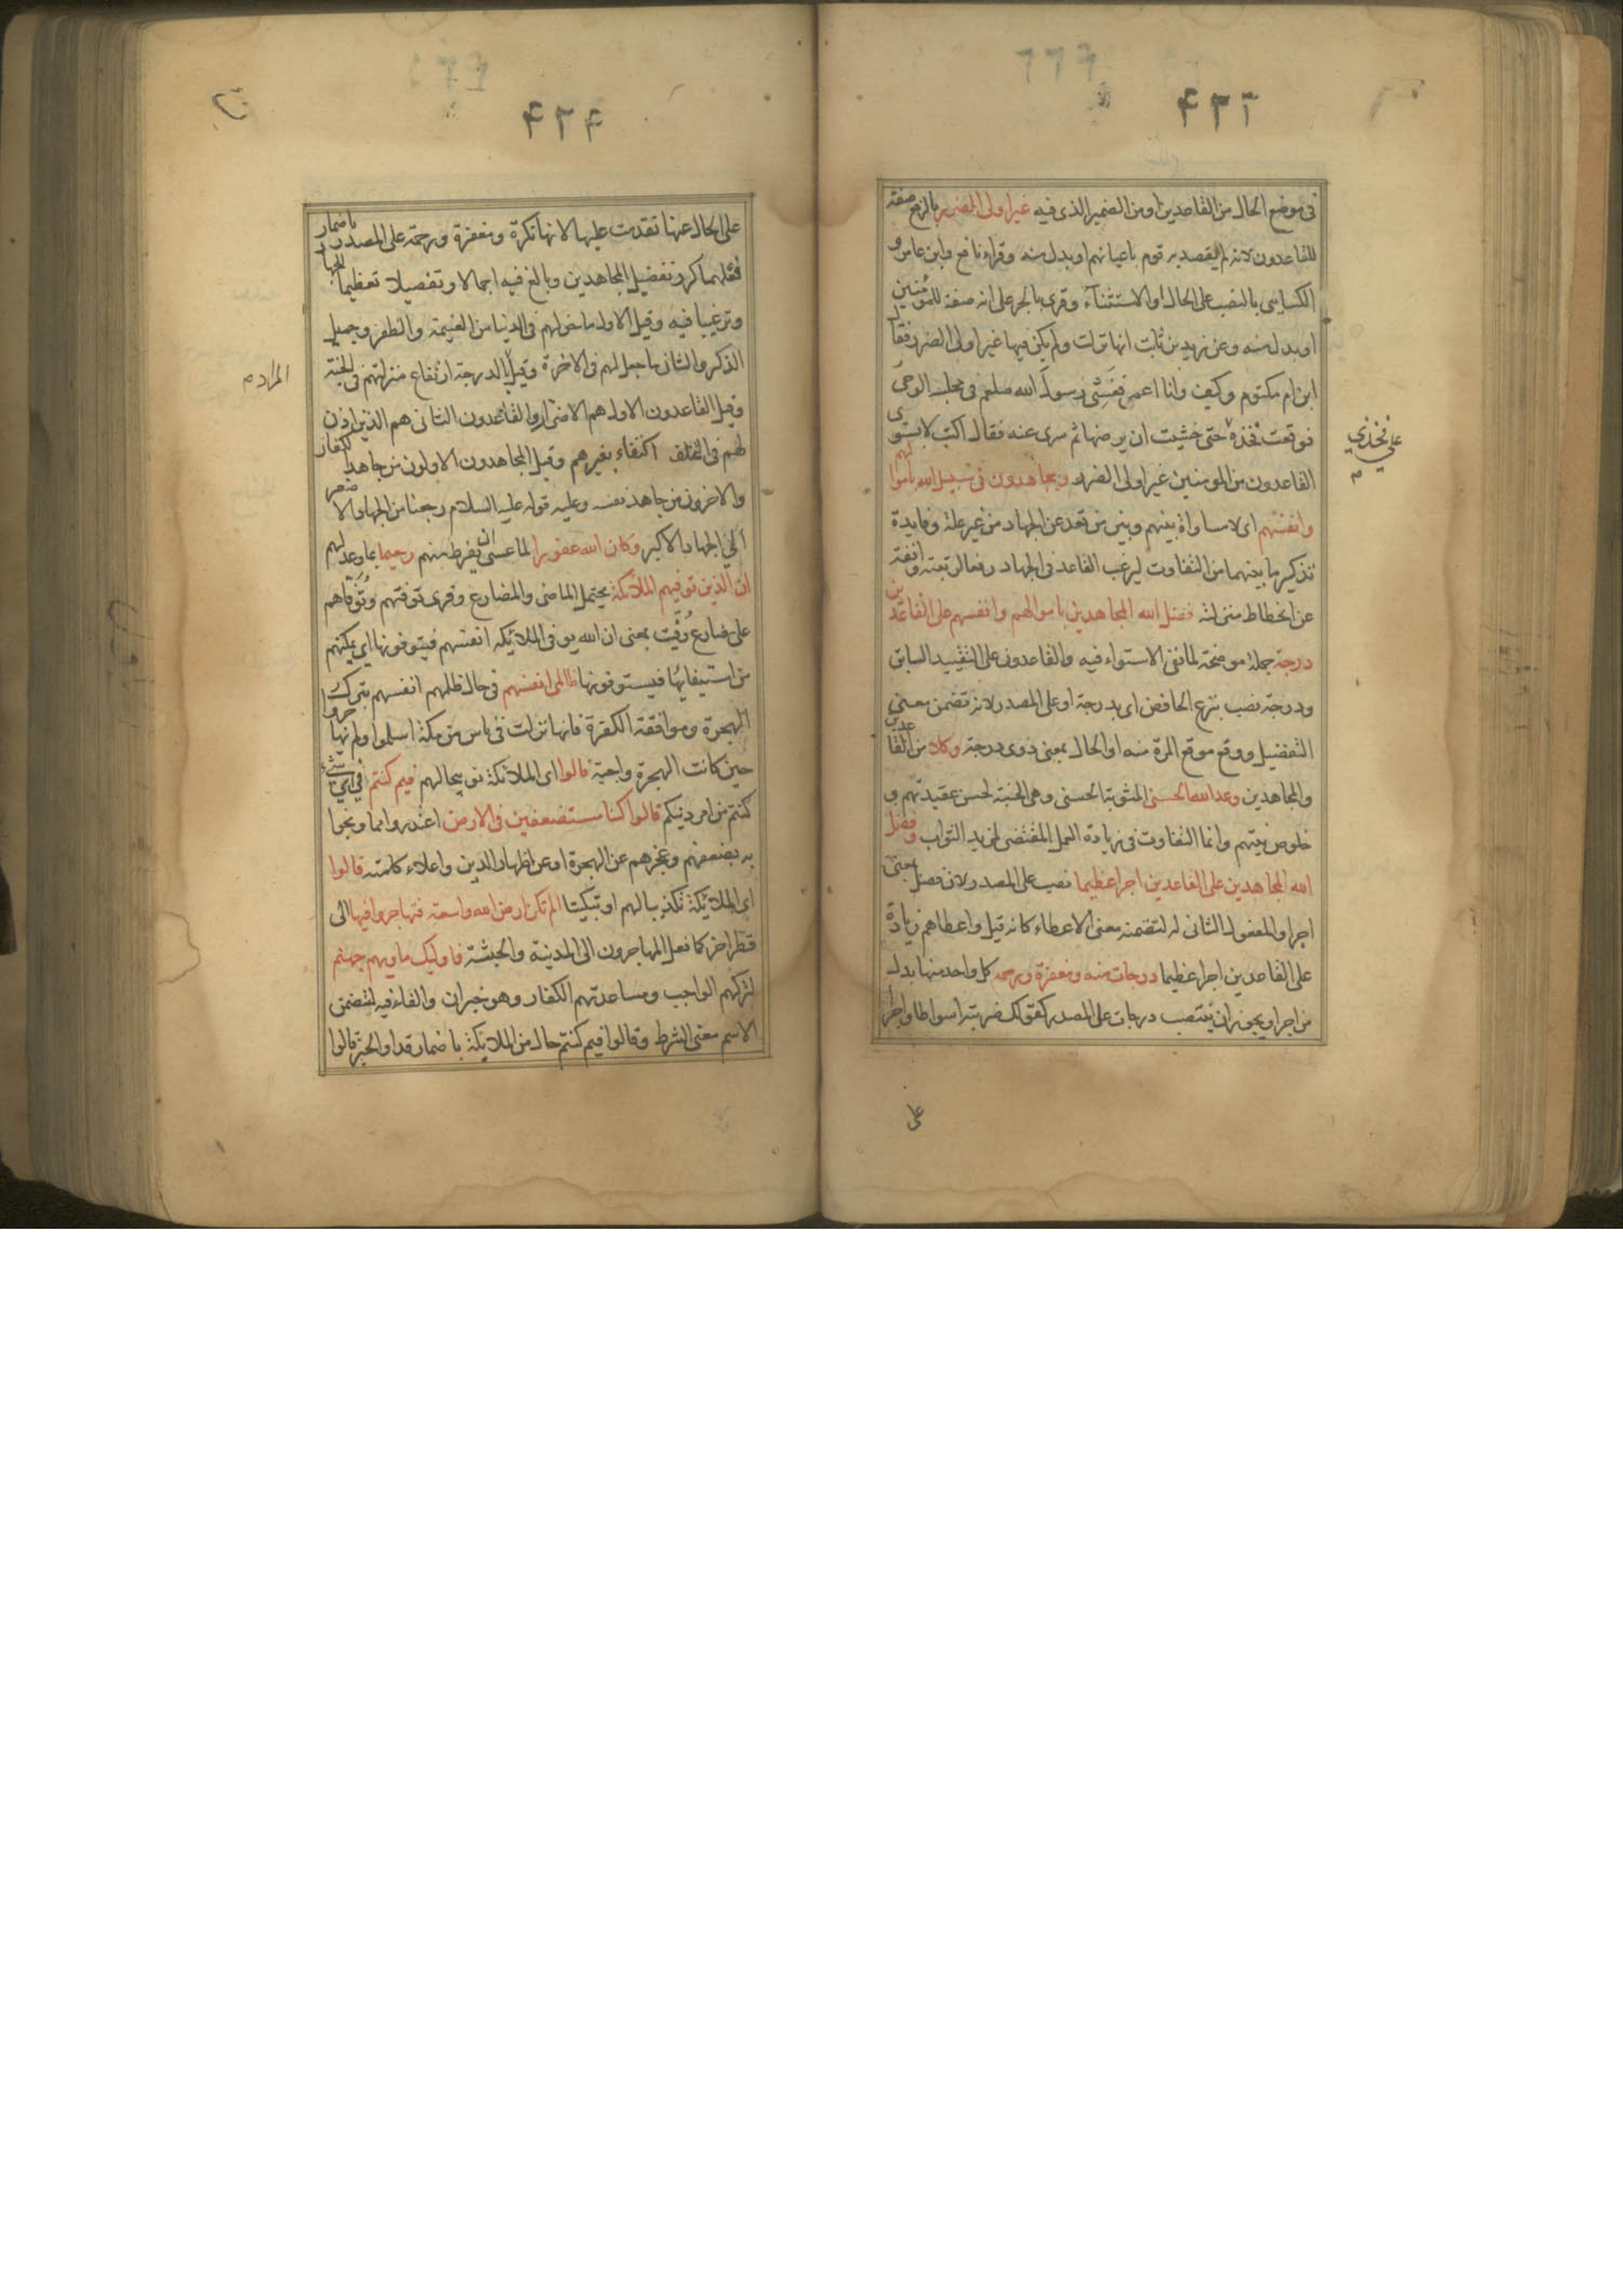 ۴۲۲
في موضع الحال من القاعدين او من الضمير الذي فيه غير اولى الضرر بالرفع صفة
للقاعدون لانه لم يقصد به قوم باعيانهم او بدل منه وقراء نافع وابن عامر و
الكسايي بالنصب على الحال او الاستثنآء وقرى بالجر على انه صفة للمؤمنين
او بدل منه وعن زيد بن ثابت انها نزلت ولم يكن فيها غير اولى الضرر فقال
ابن ام مكتوم وكيف وانا اعمى فغشى رسول الله صلعم في مجلسه الوحى
فوقعت فخذه حتى خشيت ان يرضها ثم سرى عنه فقال اكتب لا يستوى
على فخذي م
القاعدون من المومنين غير اولى الضرر ويجاهدون في سبيل الله باموالهم
وانفسهم اى لا مساواة بينهم وبين من قعد عن الجهاد من غير علة وفايدة
تذكير ما بينهما من التفاوت ليرغب القاعد في الجهاد رفعا لرتبته وانفة
عن انحطاط منزلته فضل الله المجاهدين باموالهم وانفسهم على القاعدين
درجة جملة موضحة لما نفى الاستواء فيه والقاعدون على التقييد السابق
ودرجة نصب بنزع الخافض اى بدرجة او على المصدر لانه تضمن معنى
التفضيل ووقع موقع المرة منه او الحال بمعنى ذوى درجة وكلا من القاعدين
والمجاهدين وعد الله الحسنى المثوبة الحسنى وهى الجنة لحسن عقيدتهم و
خلوص نيتهم وانما التفاوت في زيادة العمل المقتضى لمزيد الثواب وفضل
الله المجاهدين على القاعدين اجرا عظيما نصب على المصدر لان فضل بمعنى
اجر او المفعول الثاني له لتضمنه معنى الاعطاء كانه قيل واعطاهم زيادة
على القاعدين اجرا عظيما درجات منه ومغفرة ورحمه كل واحد منها بدل
من اجرا ويجوز ان ينتصب درجات على المصدر كقولك ضربته اسواطا واجرا
على
۴۲۴
على الحال عنها تقدمت عليها لانها نكرة ومغفرة ورحمة على المصدر باضمار
فعلهما كرر تفضيل المجاهدين وبالغ فيه اجمالا وتفصيلا تعظيما للجهاد
وترغيبا فيه وقيل الاول ما خولهم في الدنيا من الغنيمة والظفر وجميل
الذكر والثاني ما جعل لهم في الاخرة وقيل بالدرجة ارتفاع منزلتهم في الجنة
المراد م
وقيل القاعدون الاول هم الاضراروا القاعدون الثاني هم الذين اذن
لهم في التخلف اكتفاء بغيرهم وقيل المجاهدون الاولون من جاهد الكفار
والاخرون من جاهد نفسه وعليه قوله عليه السلام رجعنا من الجهاد الاصغر
الى الجهاد الاكبر وكان الله غفورا لما عسى ان يفرط منهم رحيما بما وعد لهم
ان الذين توفيهم الملائكة يحتمل الماضى والمضارع وقرى توفتهم وتُوَفّاهم
على مضارع وُفّيت بمعنى ان الله يوفى الملائكه انفسهم فيتوفونها اى يمكنهم
من استيفايها فيستوفونها ظالمى انفسهم في حال ظلمهم انفسهم بترك
الهجرة وموافقة الكفرة فانها نزلت في ناس من مكة اسلموا ولم يهاجروا
حين كانت الهجرة واجبة قالوا اى الملائكة توبيخا لهم فيم كنتم في اي شئ
كنتم من امر دينكم قالوا كنا مستضعفين في الارض اعتذروا مما وبخوا
به بضعفهم وعجزهم عن الهجرة او عن اظهار الدين واعلاء كلمته قالوا
اى الملائكة تكذيبا لهم او تبكيتا الم تكن ارض الله واسعة فتهاجروا فيها الى
قطر اخر كما فعل المهاجرون الى المدينة والحبشة فاوليك ماويهم جهنم
لتركهم الواجب ومساعدتهم الكفار وهو خبر ان والفاء فيه لتضمن
الاسم معنى الشرط وقالوا فيم كنتم حال من الملائكة باضمار قد او الخبر قالوا